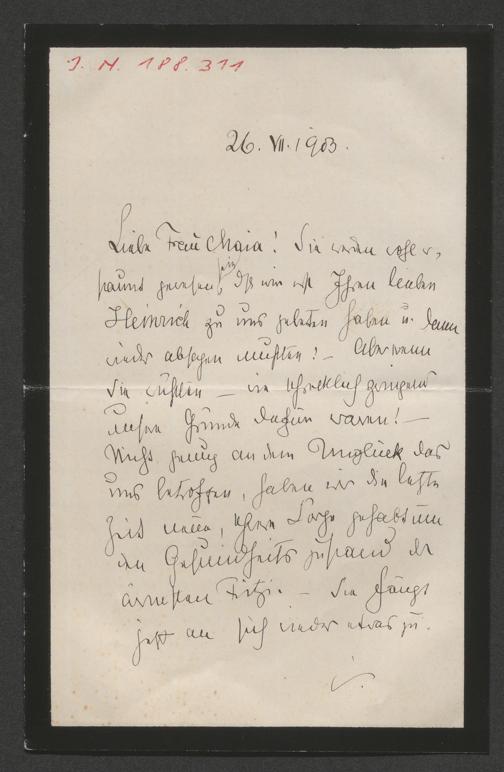 J. N. 188.311
26. VII. 1903.
Liebe Frau Maria! Sie werden wohl er-
staunt gewesen sein, daß wir erst Ihren lieben
Heinrich zu uns gebeten haben u. dann
wieder absagen mußten! – Aber wenn
Sie wüßten – wie schrecklich zwingend
unsere Gründe dafür waren! –
Nicht genug an dem Unglück das
uns betroffen, haben wir die letzte
Zeit neue, schwere Sorge gehabt um
den Gesundheitszustand der
ärmsten Fritzi. – Sie fängt
jetzt an sich wieder etwas zu